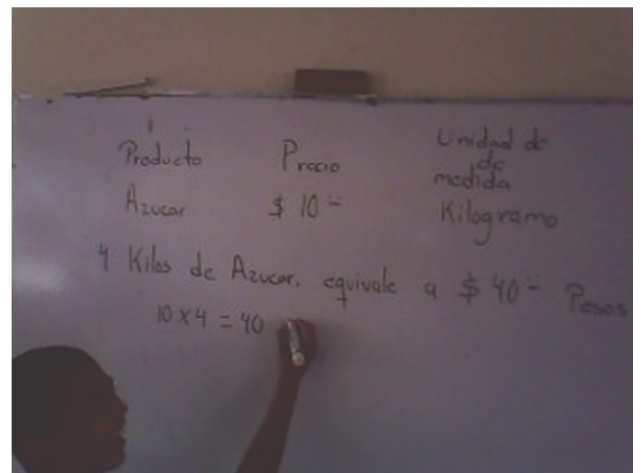 Producto Precio Unidad de
de
medida
Azucar $ 10 = Kilogramo
4 Kilos de Azucar, equivale a $ 40 = Pesos
10 x 4 = 40